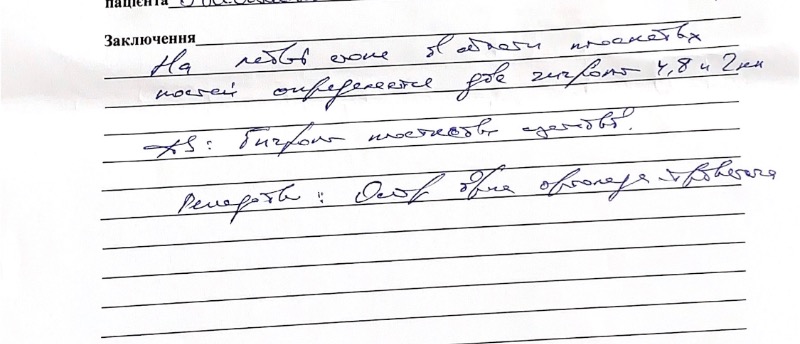 пацієнта
Заключення
На левой стопе в области плюсневых
костей определяется две гигромы 4,8 и 2 мм
DS: Гигромы плюсневых
Рекоменд: Осмотр врача ортопеда травматолога